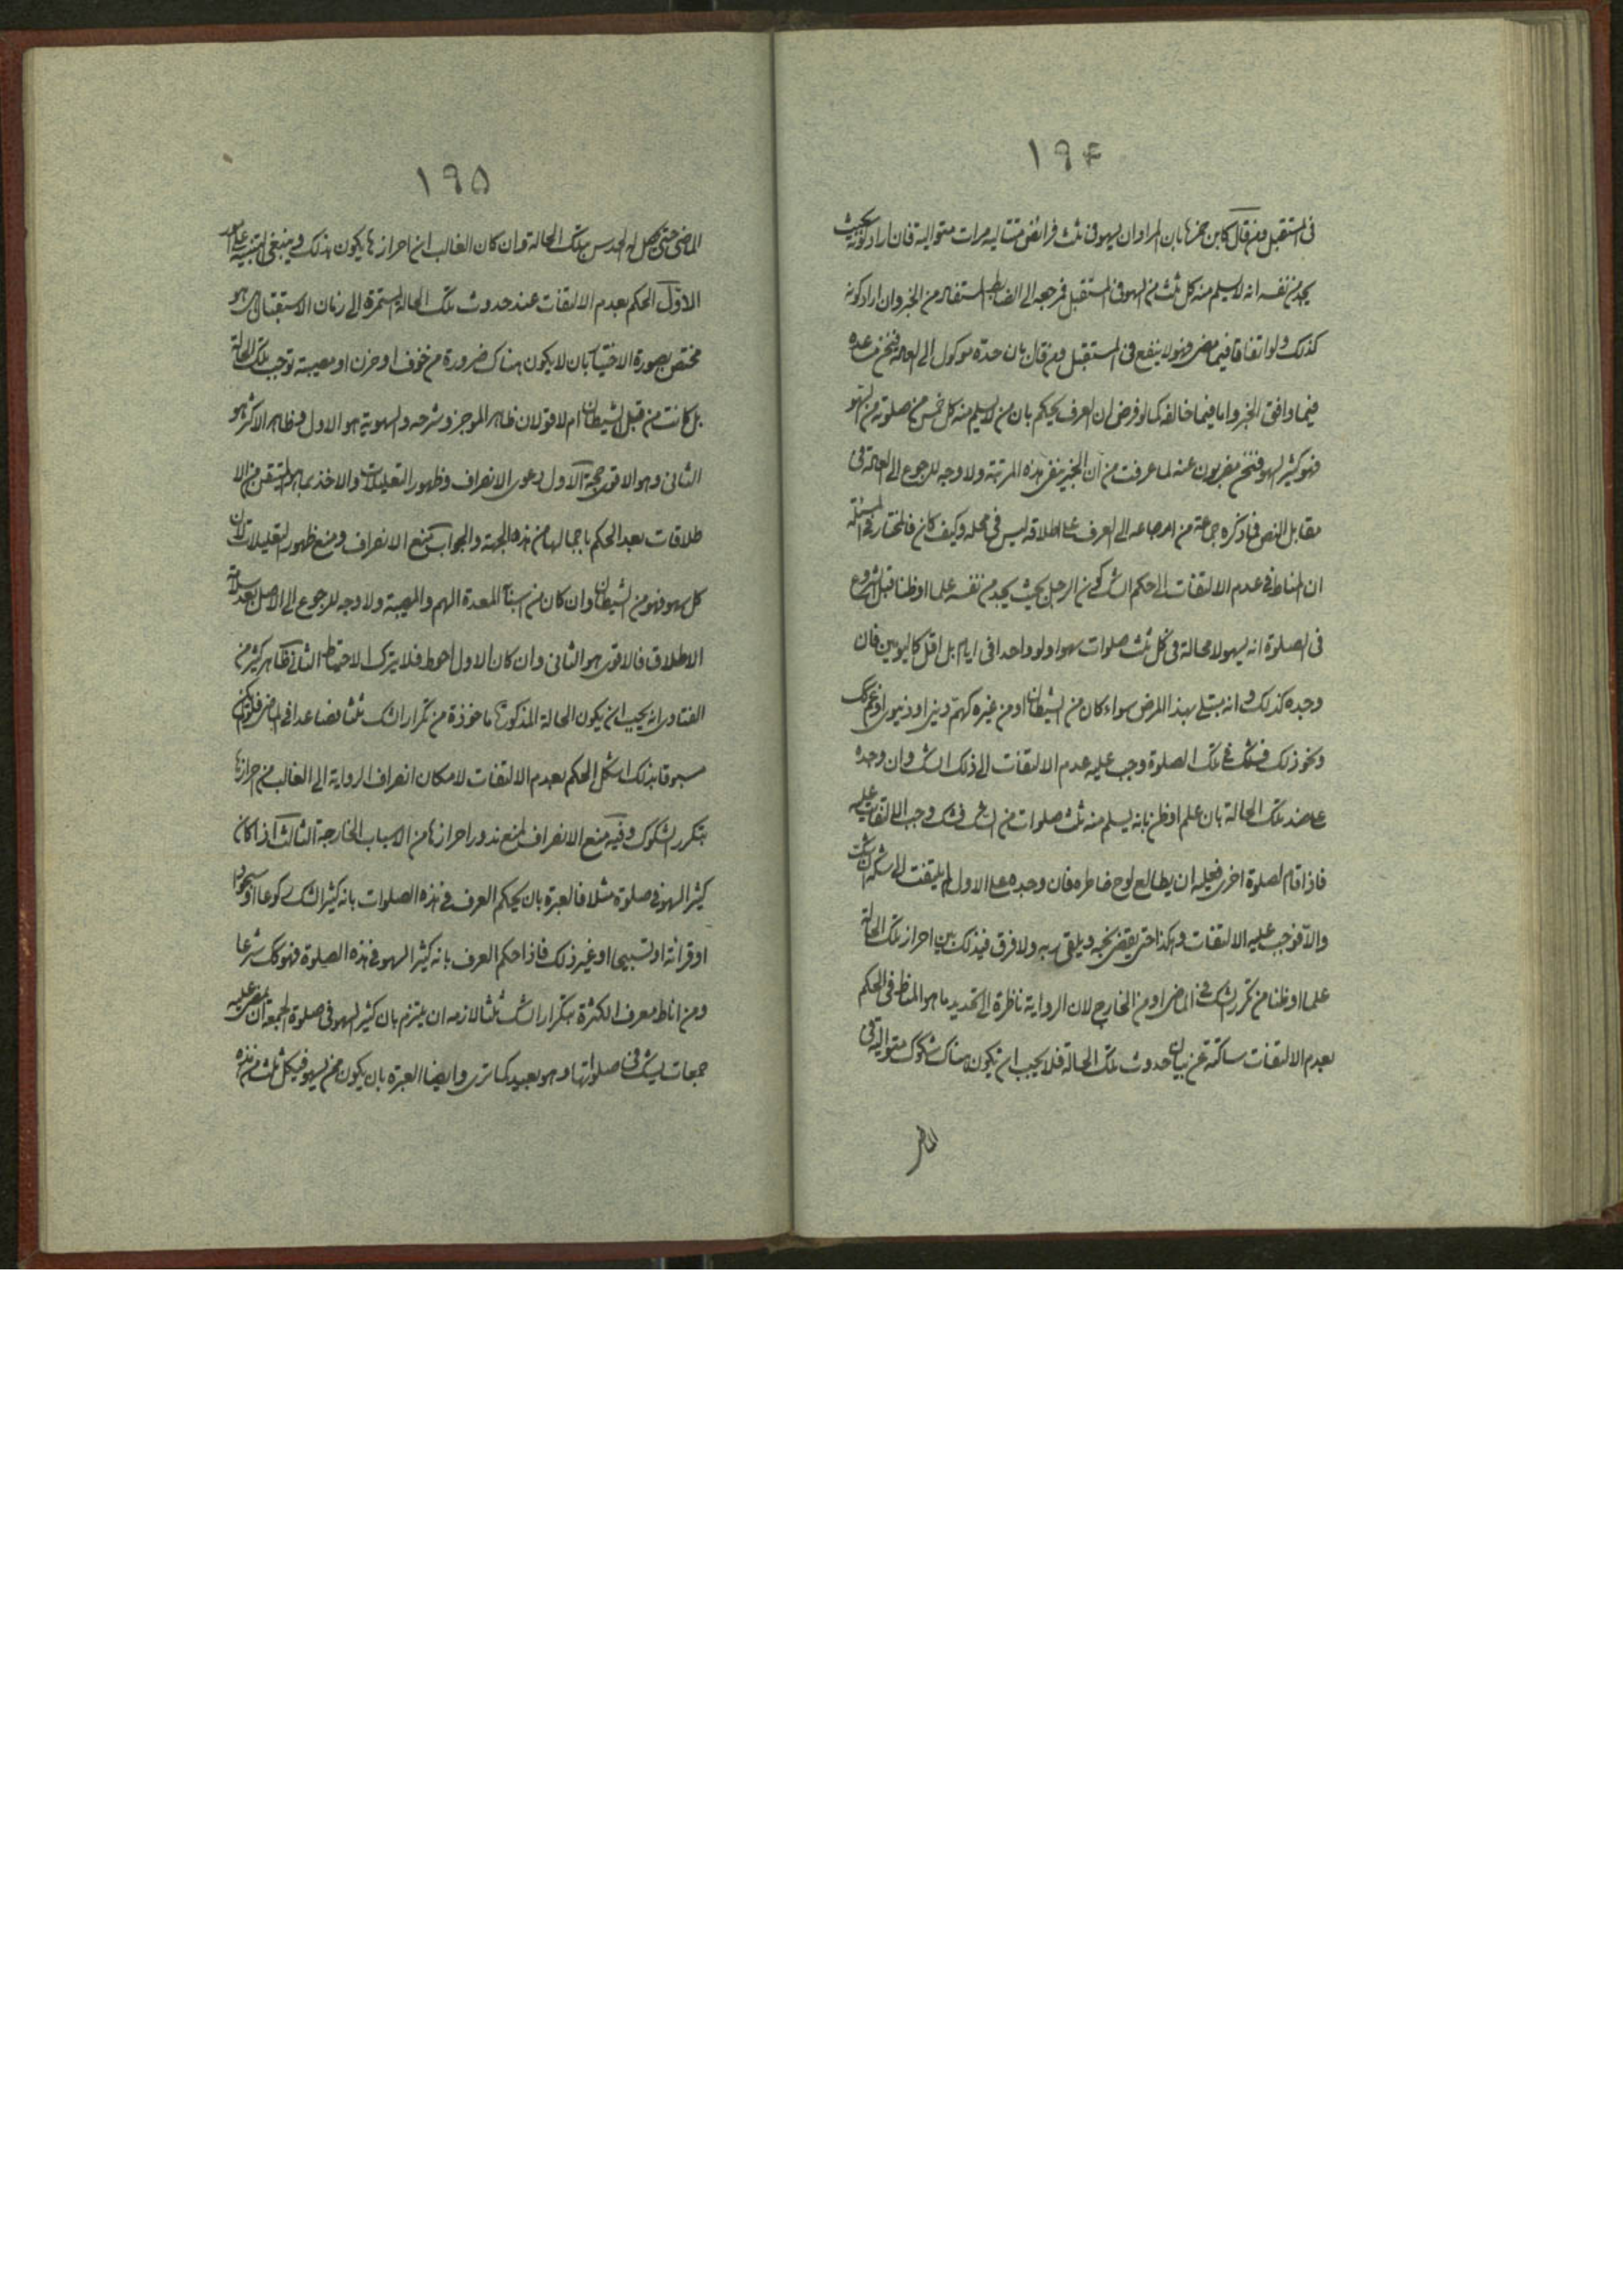 ١٩۴
فى المستقبل ومن قال كابن حمزه بان المراد ان يسهو فى ثلث فرائض متتاليه مرات متواليه فان اراد كونه بحيث
يجد من نفسه انه لا يسلم منه كل ثلث من السهو فى المستقبل فمرجعه الى الضابط المستفاد من الخبر وان اراد كونه
كذلك ولو اتفاقا فيما مضى فهو لا ينفع فى المستقبل ومن قال بان حده موكول الى العاده فنحن نساعده
فيما وافق الخبر واما فيما خالفه كما لو فرض ان العرف يحكم بان من لا يسلم منه كل خمس من صلوته من السهو
فهو كثير السهو فنحن مضربون عنه لما عرفت من ان الخبر ينفى هذه المرتبة ولا وجه للرجوع الى العادة فى
مقابل النص فما ذكره جماعة من ارجاعه الى العرف على اطلاقه ليس فى محله وكيف كان فالمختار فى المسئلة
ان المناط فى عدم الالتفات الى حكم الشك كون الرجل بحيث يجد من نفسه علما او ظنا قبل الشروع
فى الصلوة انه يسهو لا محالة فى كل ثلث صلوات سهوا ولو واحدا فى ايام بل اقل كاليومين فان
وجده كذلك وانه مبتلى بهذا المرض سواء كان من الشيطان او من غيره كهم دينى او دنيوى او غم كك
ونحو ذلك فشك فى تلك الصلوة وجب عليه عدم الالتفات الى ذلك الشك وان وجده
على ضد تلك الحالة بان علم او ظن بانه يسلم منه ثلث صلوات من الشك فشك وجب الالتفات عليه
فاذا قام لصلوة اخرى فعليه ان يطالع لوح خاطره فان وجده على الاول لم يلتفت الى شكه ان شك
والا فوجب عليه الالتفات وهكذا حتى يقضى نحبه ويلقى ربه ولا فرق فى ذلك بين احراز تلك الحالة
علما او ظنا من تكرر الشك فى الماضى او من الخارج لان الرواية ناظرة الى تحديد ما هو المناط فى الحكم
بعدم الالتفات ساكتة عن بيان حدوث تلك الحالة فلا يجب ان تكون هناك شكوك متوالية فى
الماضى
١٩۵
الماضى حتى يحصل له الحدس بتلك الحالة وان كان الغالب ان احرازها يكون بذلك وينبغى التنبيه على امور
الاول الحكم بعدم الالتفات عند حدوث تلك الحالة المستمرة الى زمان الاستقبال هل هو
مختص بصورة الاختيار بان لا يكون هناك ضرورة من خوف او حزن او مصيبة توجب تلك الحالة
بل كانت من قبل الشيطان ام لا قولان ظاهر الموجز وشرحه والسهوية هو الاول وظاهر الاكثر هو
الثانى وهو الاقوى حجة الاول دعوى الانصراف وظهور التعليلات والاخذ بما هو المتيقن من الا
طلاقات بعد الحكم باجمالها من هذه الجهة والجواب منع الانصراف ومنع ظهور التعليلات لان
كل سهو فهو من الشيطان وان كان من اسبابه المعدة الهم والمصيبة ولا وجه للرجوع الى الاصل بعد سلامة
الاطلاق فالاقوى هو الثانى وان كان الاول احوط فلا يترك الاحتياط الثانى ظاهر كثير من
الفتاوى انه يجب ان يكون الحالة المذكورة ماخوذة من تكرار الشك ثلثا فصاعدا فى الماضى فلو لم يكن
مسبوقا بذلك اشكل الحكم بعدم الالتفات لامكان انصراف الرواية الى الغالب من احرازها
بتكرر الشكوك وفيه منع الانصراف لمنع ندور احرازها من الاسباب الخارجة الثالث اذا كان
كثير السهو فى صلوة مثلا فالعبرة بان يحكم العرف فى هذه الصلوات بانه كثير الشك ركوعا او سجودا
او قرائة او تسبيحا او غير ذلك فاذا حكم العرف بانه كثير السهو فى هذه الصلوة فهو كك شرعا
ومن اناط معرف الكثرة بتكرار الشك ثلثا لازمه ان يلتزم بان كثير السهو فى صلوة الجمعة ان يمضى عليه
جمعات يشك فى صلواتها وهو بعيد كما ترى وايضا العبرة بان يكون ممن يسهو فى كل ثلث من هذه